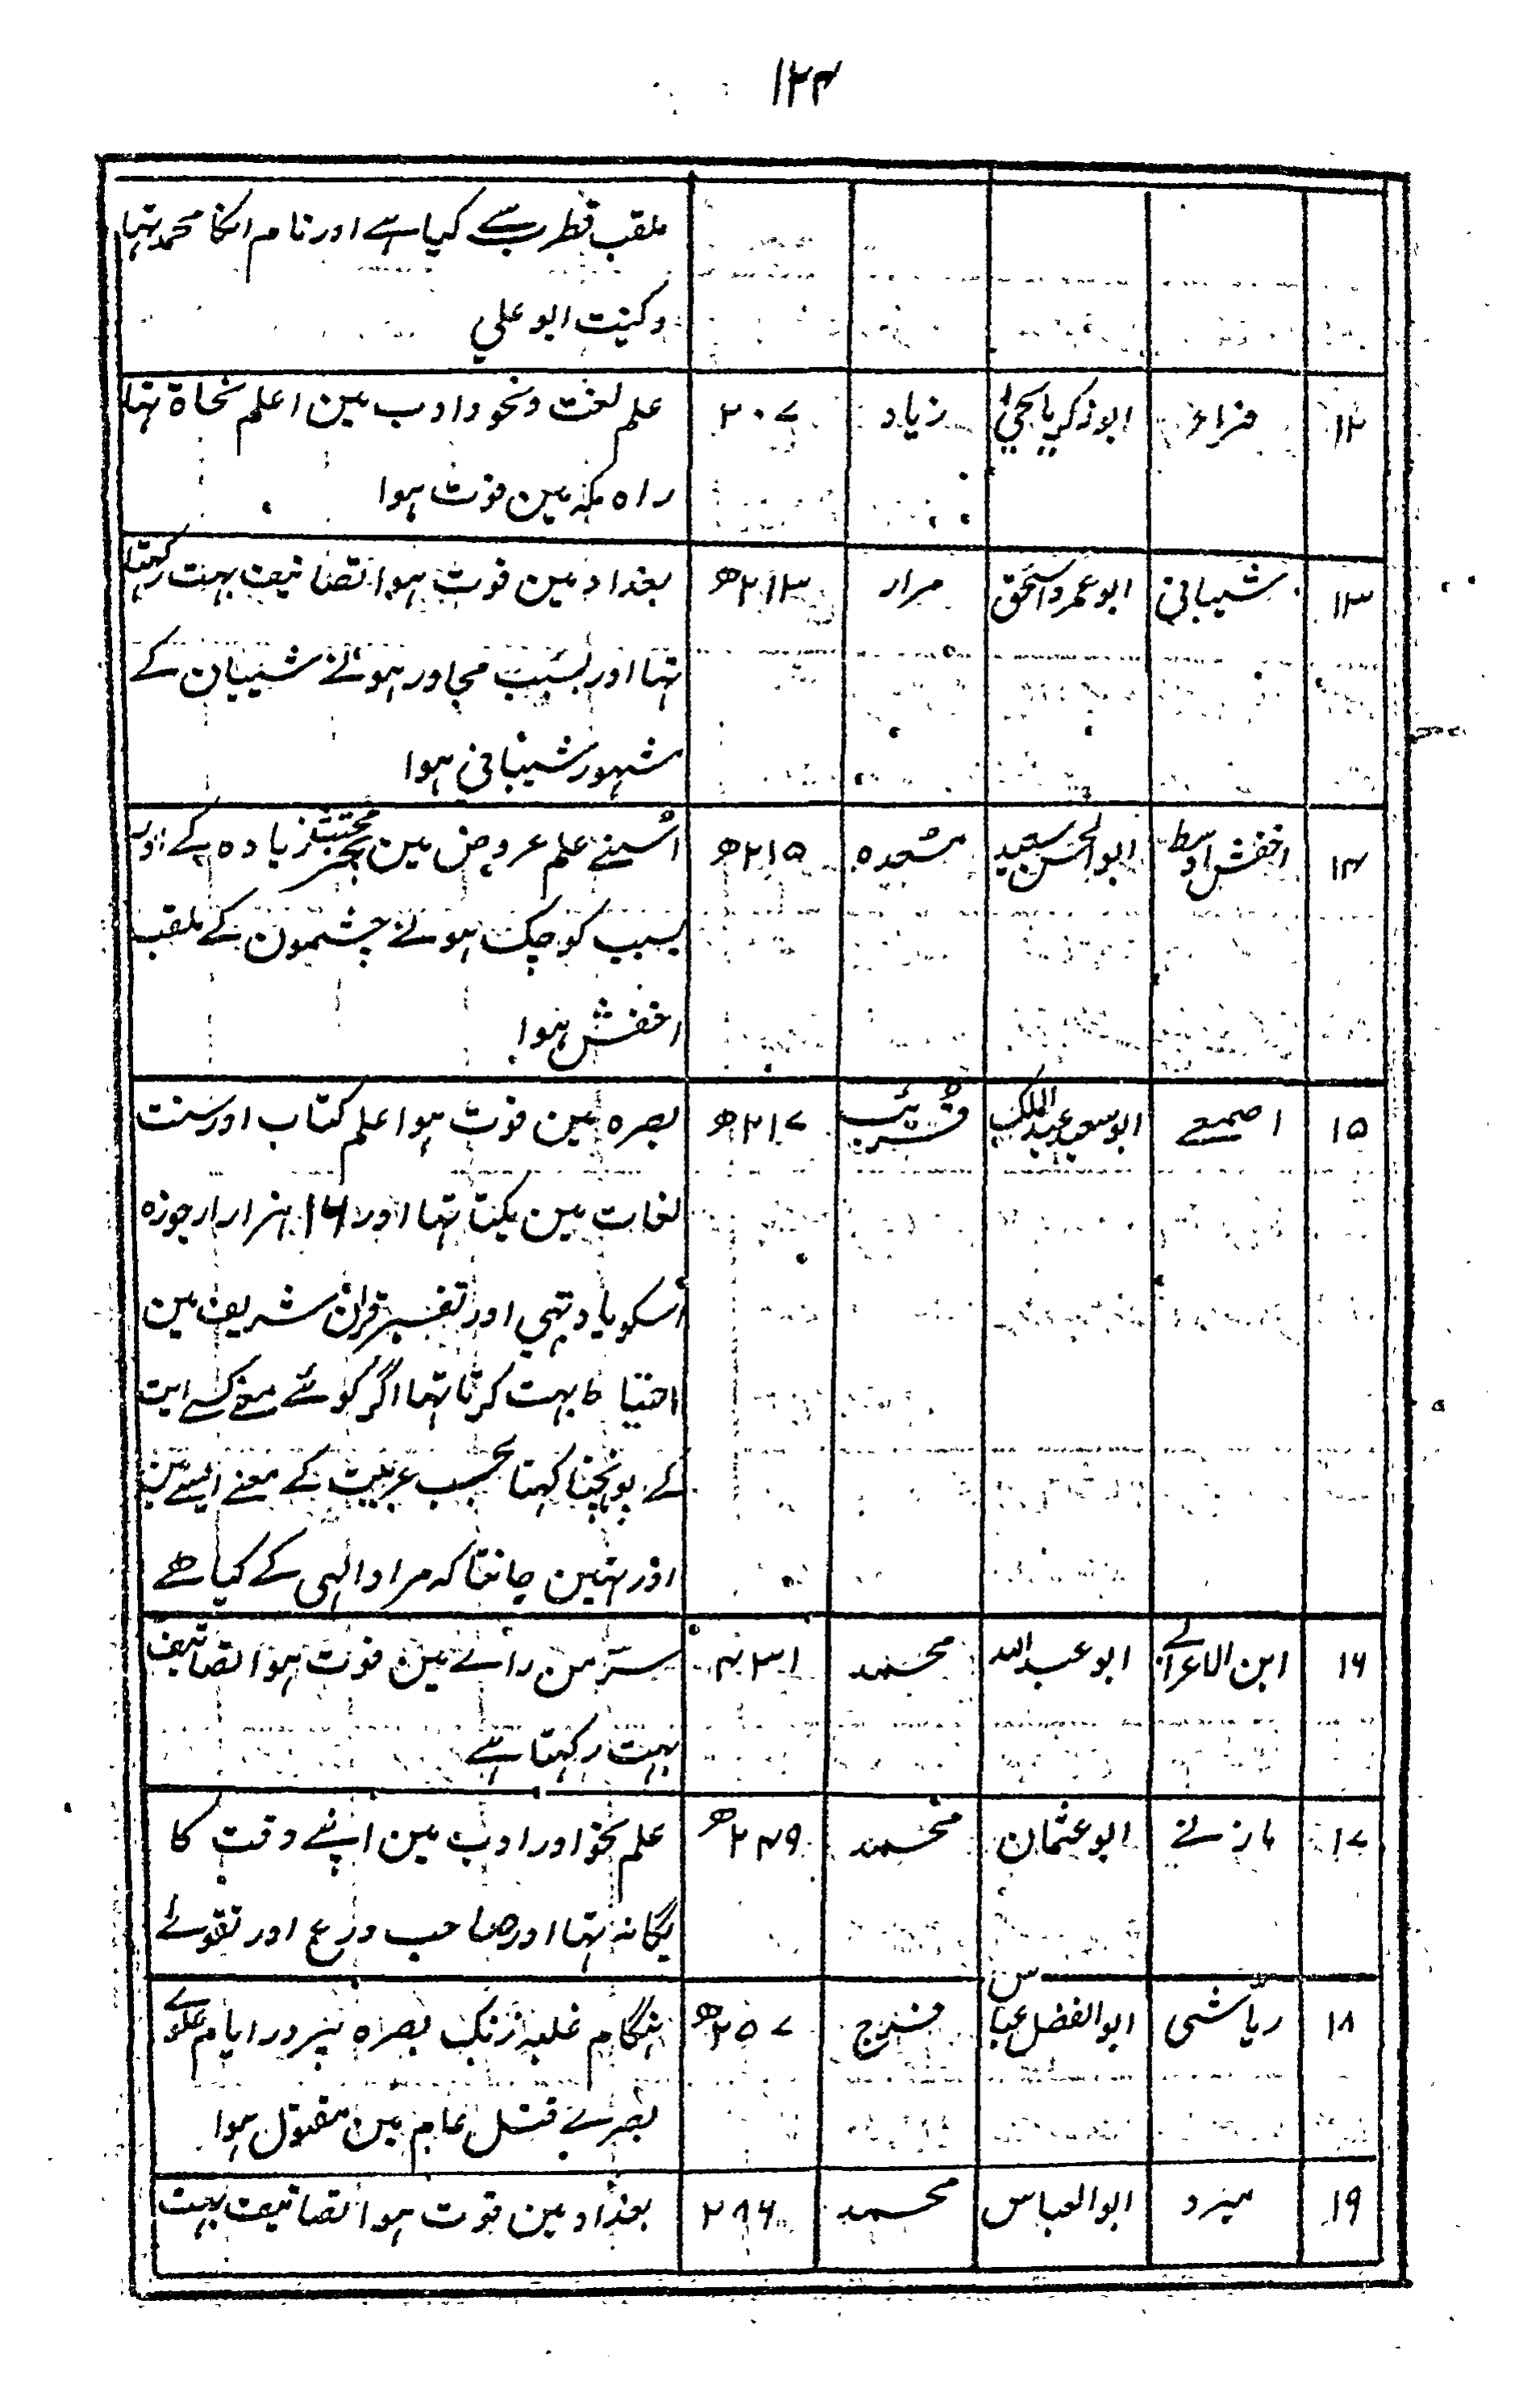 ۱۲۴
ملقب قطرب سے کیا ہے اور نام اسکا محمد تہا
وکنیت ابو علی
۱۲ فراء ابو ذکریا یحیٰ زیاد ۲۰۷ علم لغت ونحو وادب مین اعلم نحاۃ تہا
راہ مکہ مین فوت ہوا
۱۳ شیبانی ابو عمرو اسحٰق مرار ۲۱۳ھ بغداد مین فوت ہوا تصانیف بہت رکہتا
تہا اور بسبب مجاور ہونے شیبان کے
مشہور شیبانی ہوا
۱۴ اخفش اوسط ابو الحسن سعید مسعدہ ۲۱۵ھ اُسنے علم عروض مین بحر مجتث زیادہ کے اور
بسبب کوچک ہونے چشمون کے ملقب
اخفش ہوا
۱۵ اصمعے ابو سعید عبد الملک قُرَیب ۲۱۷ھ بصرہ مین فوت ہوا علم کتاب اور سنت
لغات مین یکتا تہا اور ۱۶ ہزار ارجوزہ
اُسکو یاد تہی اور تفسیر قرآن شریف مین
احتیاط بہت کرتا تہا اگر کوئے معنے کسے ایت
کے پونچہتا کہتا بحسب عربیت کے معنے ایسے ہین
اور نہین جانتا کہ مراد الہی کے کیا ہے
۱۶ ابن الاعرابے ابو عبد اللہ محمد ۲۳۱ سرّ من رأے مین فوت ہوا تصانیف
بہت رکہتا ہے
۱۷ مازنے ابو عثمان محمد ۲۴۹ھ علم نحو اور ادب مین اپنے وقت کا
یگانہ تہا اور صاحب ورع اور تقوے
۱۸ ریّاشی ابو الفضل عباس فرج ۲۵۷ھ ہنگام غلبہ زنگ بصرہ پر در ایام علوے
بصرے قتل عام مین مقتول ہوا
۱۹ مبرد ابو العباس محمد ۲۸۶ بغداد مین فوت ہوا تصانیف بہت